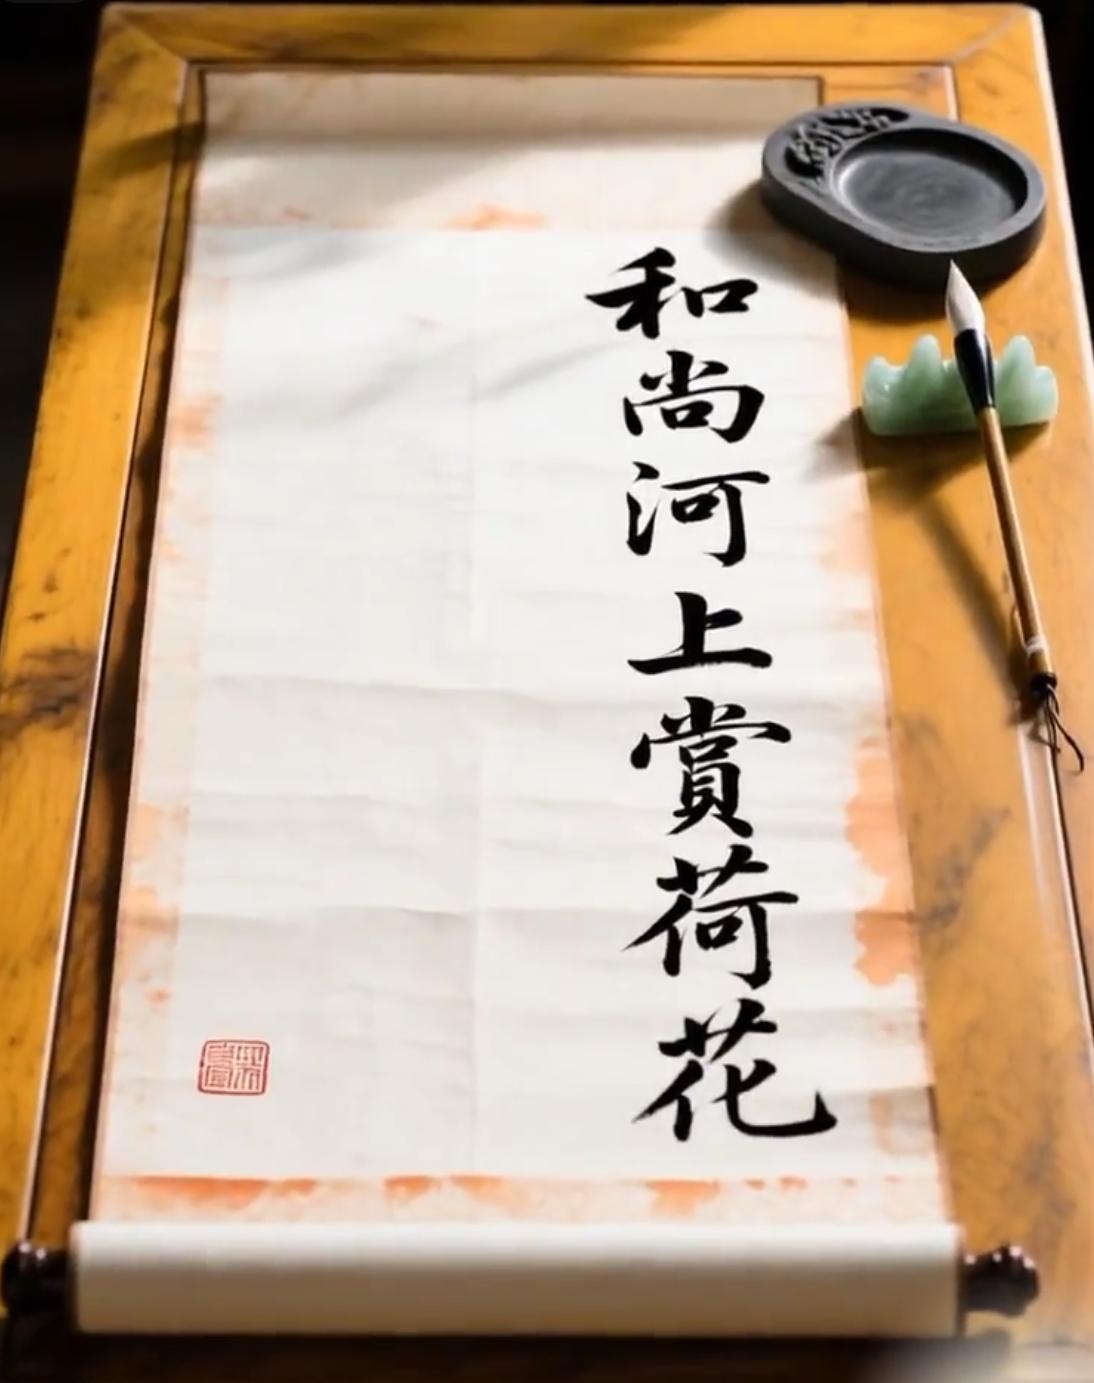 和尚河上賞荷花